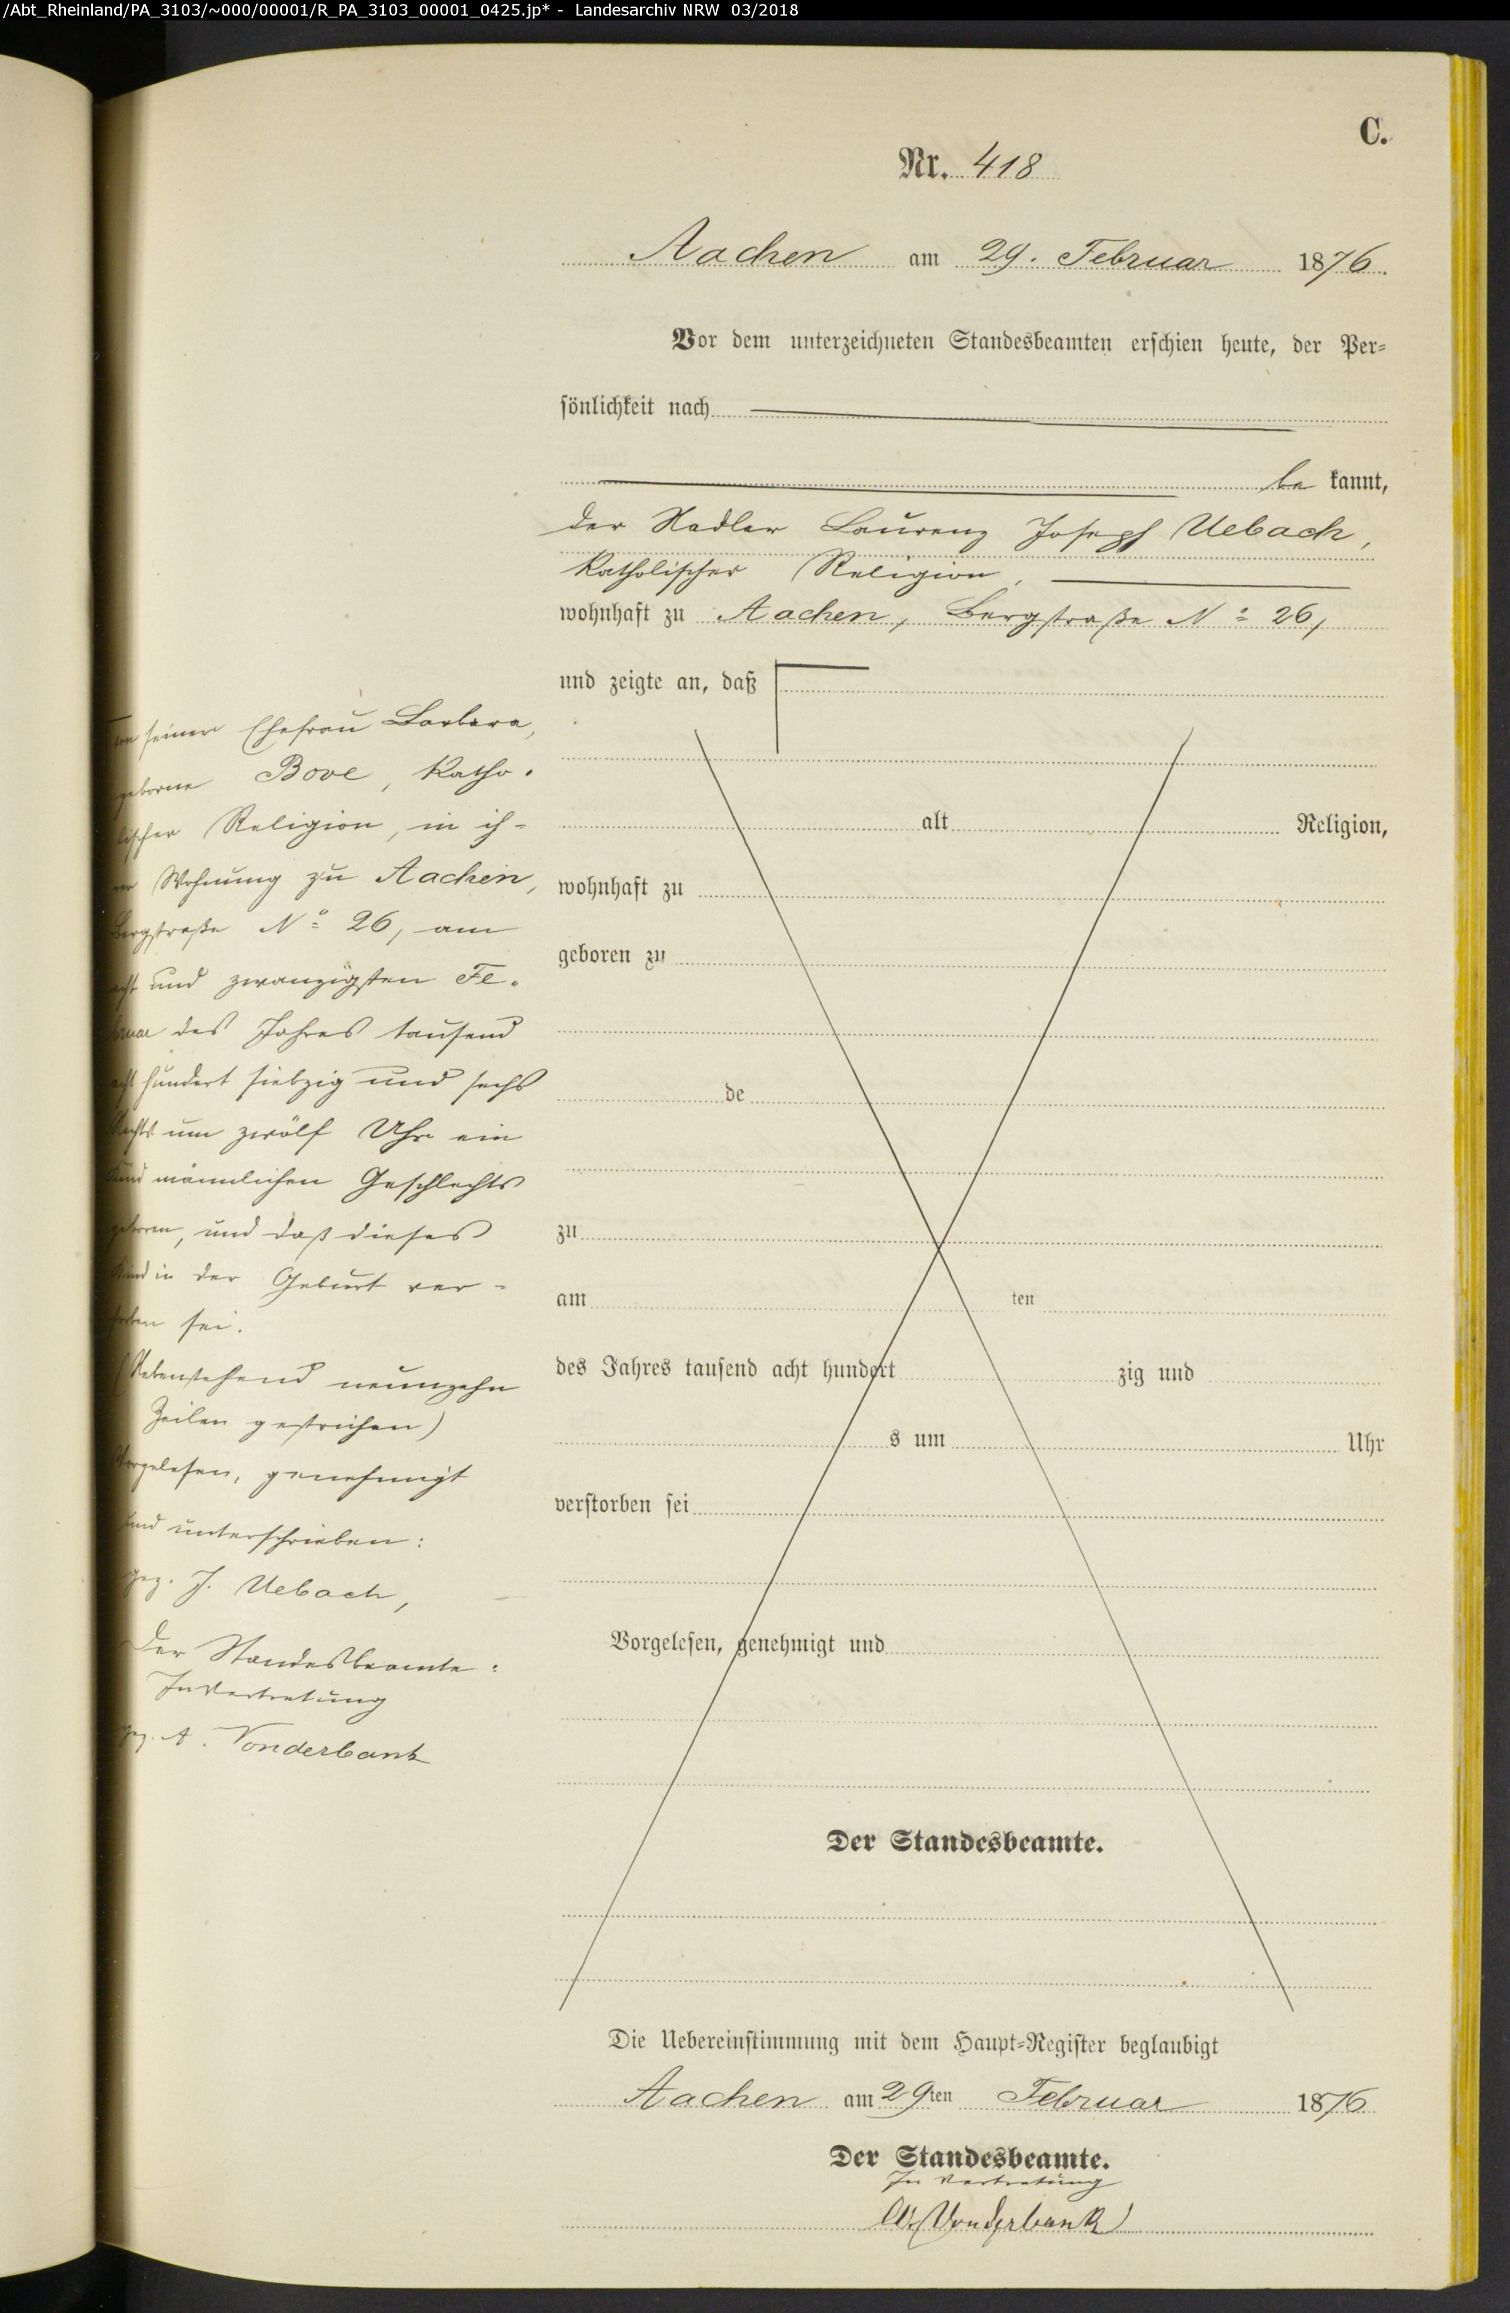 /Abt_Rheinland/PA_3103/~000/00001/R_PA_3103_00001_0425.jp* - Landesarchiv NRW 03/2018
C.
Nr. 418
Aachen am 29. Februar 1876.
Vor dem unterzeichneten Standesbeamten erschien heute, der Per=
sönlichkeit nach
be kannt,
der Nadler Laurenz Joseph Uebach,
katholischer Religion,
wohnhaft zu Aachen, Bergstraße No 26,
und zeigte an, daß
von seiner Ehefrau Barbara,
geborne Bove, katho-
lischer Religion, in ih-
rer Wohnung zu Aachen,
Bergstraße No 26, am
acht und zwanzigsten Fe-
bruar des Jahres tausend
acht hundert siebzig und sechs
Nachts um zwölf Uhr ein
Kind männlichen Geschlechts
geboren, und daß dieses
Kind in der Geburt ver-
storben sei.
(Nebenstehend neunzehn
Zeilen gestrichen)
Vorgelesen, genehmigt
und unterschrieben:
gez. J. Uebach,
Der Standesbeamte:
In Vertretung
gez. A. Vonderbank
alt Religion,
wohnhaft zu
geboren zu
de
zu
am ten
des Jahres tausend acht hundert zig und
s um Uhr
verstorben sei
Vorgelesen, genehmigt und
Der Standesbeamte.
Die Uebereinstimmung mit dem Haupt=Register beglaubigt
Aachen am 29ten Februar 1876
Der Standesbeamte.
In Vertretung
Vonderbank